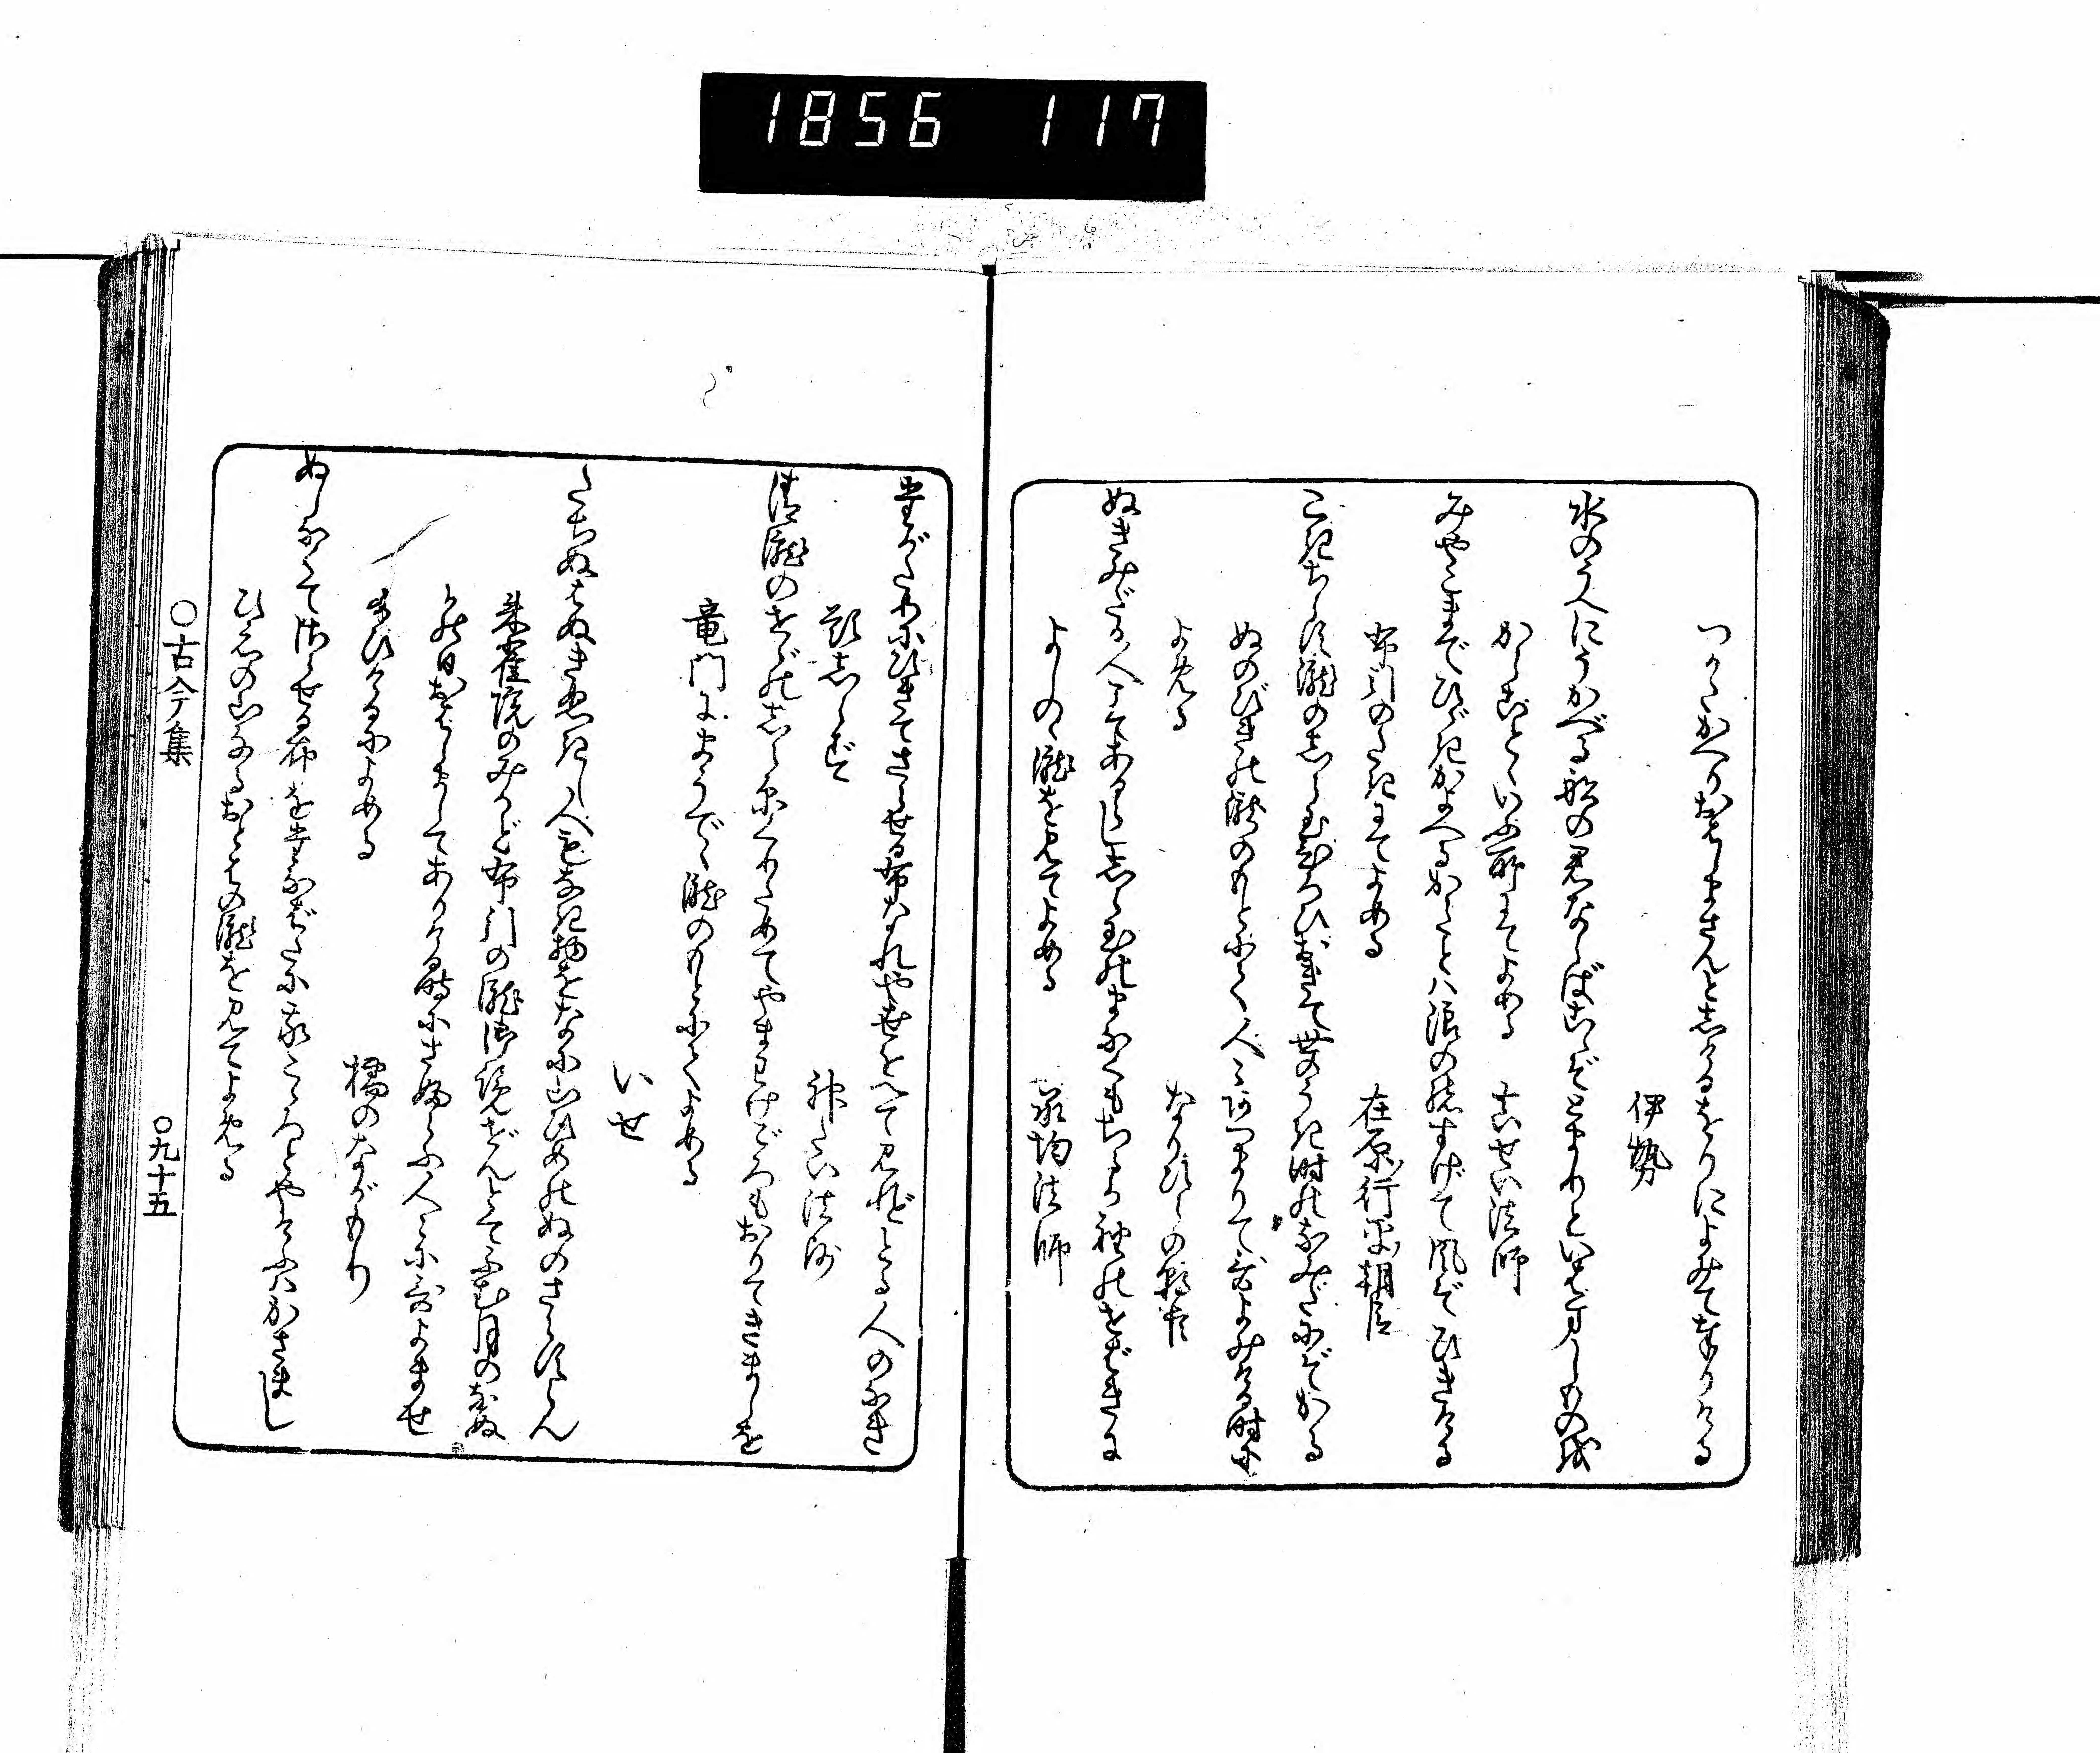 1856 117
つかたかへりおはしまさんとしけるをりによみて奉りける
伊勢
水のうへにうかべる船の君ならばこゝぞとまりといはましものを
からことゝいふ所にてよめる　真せい法師
みやこまでひゞきかよへるからことハ浪の緒すげて風ぞひきける
布引のたきにてよめる　在原行平朝臣
こきちらす瀧のしら玉ひろひおきて世のうき時のなみだにぞかる
ぬのびきの瀧のもとにて人々あつまりて哥よみける時に
よめる　なりひらの朝臣
ぬきみだる人こそあるらし白玉のまなくもちるか袖のせばきに
よしのゝ瀧を見てよめる　承均法師
たがためにひきてさらせる布なれや世をへて見れどとる人のなき
題しらず　神たい法師
清瀧のせゞのしら糸くりためてやまわけごろもおりてきましを
竜門にまうでゝ瀧のもとにてよめる
いせ
たちぬはぬきぬきし人もなき物をなに山ひめのぬのさらすらん
朱雀院のみかど布引の瀧御覧ぜんとてふむ月のなぬ
かの日おはしましてありける時にさぶらふ人々に哥よませ
給ひけるによめる　橘のながもり
ぬしなくてさらせる布をたなばたに我こゝろとやけふハかさまし
ひえの山なるおとはの瀧を見てよめる
○古今集　○九十五